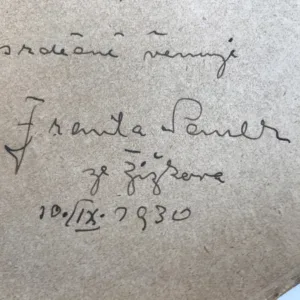 srdečně věnuje
Franta Sauer
ze Žižkova
10./IX. 1930